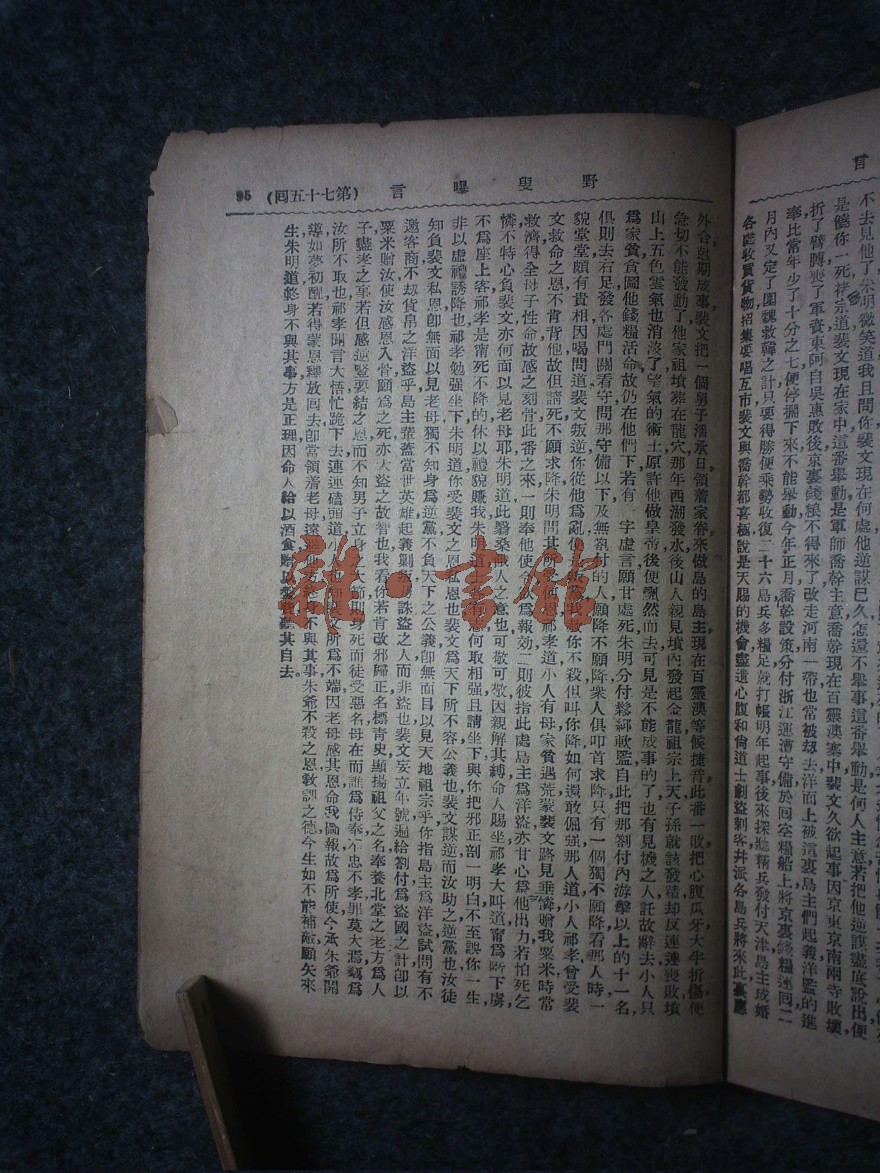 言
不去見他了朱明微笑道我且問你裴文現在何處他逆謀已久怎還不舉事這番舉動是何人主意若把他逆謀盡底說出便
是饒你一死禄宗道裴文現在家中這番舉動是軍師喬幹主意喬幹現在百靈澳寨中裴文久欲起事因京東京南兩寺敗壞
折了臂膊喪了軍資東阿自吳惠敗後京裏錢糧不得來了改走河南一帶也常被刼去洋面上被這裏島主們起義洋盜的進
奉比當年少了十分之七便停擱下來不能舉動今年正月喬幹設策分付浙江運漕守備於回空糧船上將京裏錢糧連回二
月內又定了圍魏救韓之計只要得勝便乘勢收復二十六島兵多糧足就打帳明年起事後來探聽精兵發付天津島主成婚
各誌收買貨物招集要唱互市裴文與喬幹都喜極說是天賜的機會盡遣心腹和尙道士劇盜刺客幷派各島兵將來此裏應
野叟曝言 (第七十五回) 95
外合剋期成事裴文把一個男子潘承日領着家眷來做島的島主現在百靈澳等候捷音此番一敗把心腹瓜牙大半折傷便
急切不能發動了他家祖墳葬在龍穴那年西湖發水後山人親見墳內發起金龍祖宗上天子孫就該發積却反連連喪敗墳
山上五色雲氣也消沒了望氣的術士原許他做皇帝後便飄然而去可見是不能成事的了也有見機之人託故辭去小人只
爲家貧貪圖他錢糧活命故仍在他們下若有一字虛言願甘處死朱明分付鬆綁軟監自此把那劄付內游擊以上的十一名
俱則去右足發各處門關看守問那守備以下及無劄付的人願降不願降衆人俱叩首求降只有一個獨不願降看那人時一
貌堂堂頗有貴相因喝問道裴文叛逆你從他爲亂
你不殺但叫你降如何還敢倔强那人道小人祁孝曾受裴
文救命之恩不肯背他故但請死不願求降朱明問其所
恩祁孝道小人有母家貧遇荒蒙裴文路見垂憐贈我粟米時常
救濟得全母子性命故感之刻骨此番之來一則奉他使令
爲報効二則彼指此處島主爲洋盜亦甘心爲他出力若怕死乞
憐不特心負裴文亦何面以見老母耶朱明道此翳桑餓人之意也可敬可敬因親解其縛命人賜坐祁孝大叫道甯爲階下虜
不爲座上客祁孝是甯死不降的休以禮貌賺我朱明道
何取相强且請坐下與你把邪正剖一明白不至誤你一生
非以虛禮誘降也祁孝勉强坐下朱明道你受裴文之恩私恩也裴文爲天下所不容公義也裴文謀逆而汝助之逆黨也汝徒
知負裴文私恩卽無面以見老母獨不知身爲逆黨不負天下之公義卽無面目以見天地祖宗乎你指島主爲洋盜試問有不
邀客商不刼貨帛之洋盜乎島主輩蓋當世英雄起義剿
誅盜之人而非盜也裴文妄立年號遍給劄付爲盜國之計卽以
粟米贈汝使汝感恩入骨願爲之死亦大盜之故智也我看你若肯改邪歸正名標青史顯揚祖父之名奉養北堂之老方爲人
子盡孝之事若但感逆豎要結之恩而不知男子立身之大節則身死而徒受惡名母在而誰爲侍奉不忠不孝罪莫大焉竊爲
汝所不取也祁孝聞言大悟忙跪下去連連磕頭道小
文所爲不端因老母感其恩命我圖報故爲所使今承朱爺開
導如夢初醒若得蒙恩釋放回去卽當領着老母遠
不與其事朱爺不殺之恩敎訓之德今生如不能補敵願矢來
生朱明道終身不與其事方是正理因命人給以酒食贈以盤費聽其自去。